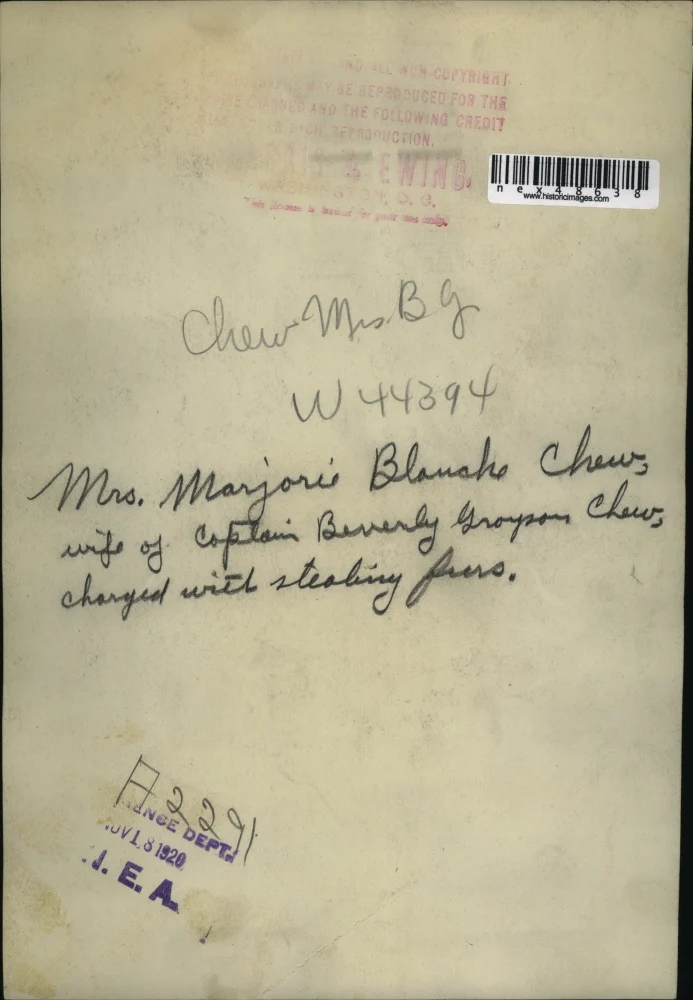 AND ALL NON-COPYRIGHT
MAY BE REPRODUCED FOR THE
AND THE FOLLOWING CREDIT
EACH REPRODUCTION.
& EWING,
WASHINGTON, D. C.
This license is issued for your use only.
nex48638
www.historicimages.com
Chew Mrs. B G
W 44394
Mrs. Marjorie Blanche Chew,
wife of Captain Beverly Grayson Chew,
charged with stealing furs.
A2291
DEPT.
NOV 18 1920
N. E. A.